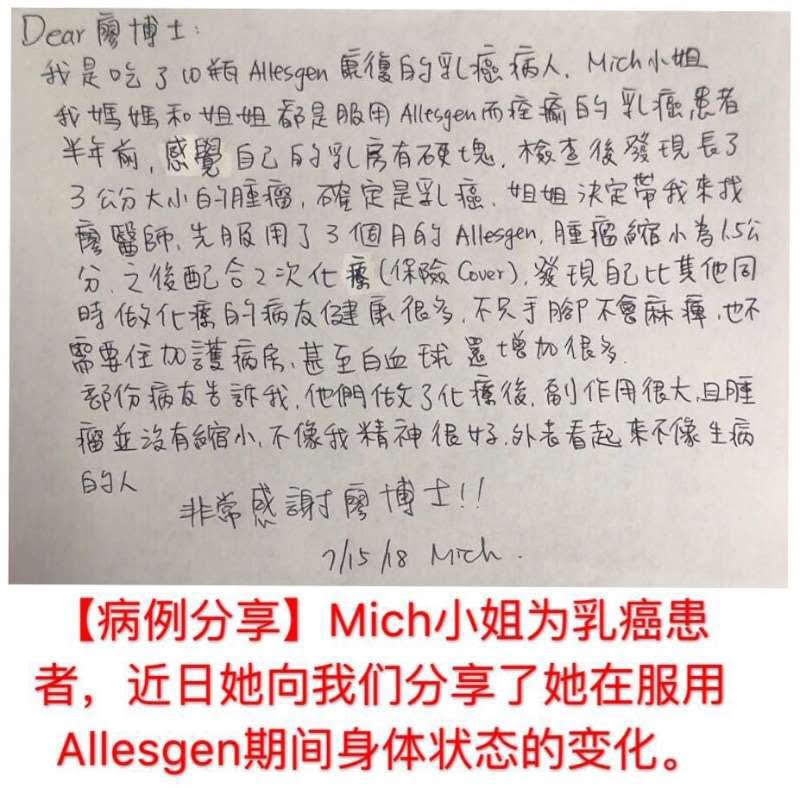 Dear 廖博士:
我是吃了10瓶 Allesgen 康復的乳癌病人, Mich小姐
我媽媽和姐姐都是服用Allesgen而痊癒的乳癌患者
半年前, 感覺自己的乳房有硬塊, 檢查後發現長了
3公分大小的腫瘤, 確定是乳癌, 姐姐決定帶我來找
廖醫師, 先服用了3個月的 Allesgen, 腫瘤縮小為1.5公
分, 之後配合2次化療(保險 Cover), 發現自己比其他同
時做化療的病友健康很多, 不只手腳不會麻痺, 也不
需要住加護病房, 甚至白血球還增加很多.
部份病友告訴我, 他們做了化療後, 副作用很大, 且腫
瘤並沒有縮小, 不像我精神很好, 外表看起來不像生病
的人
非常感謝廖博士!!
7/15/18 Mich.
【病例分享】Mich小姐为乳癌患
者，近日她向我们分享了她在服用
Allesgen期间身体状态的变化。